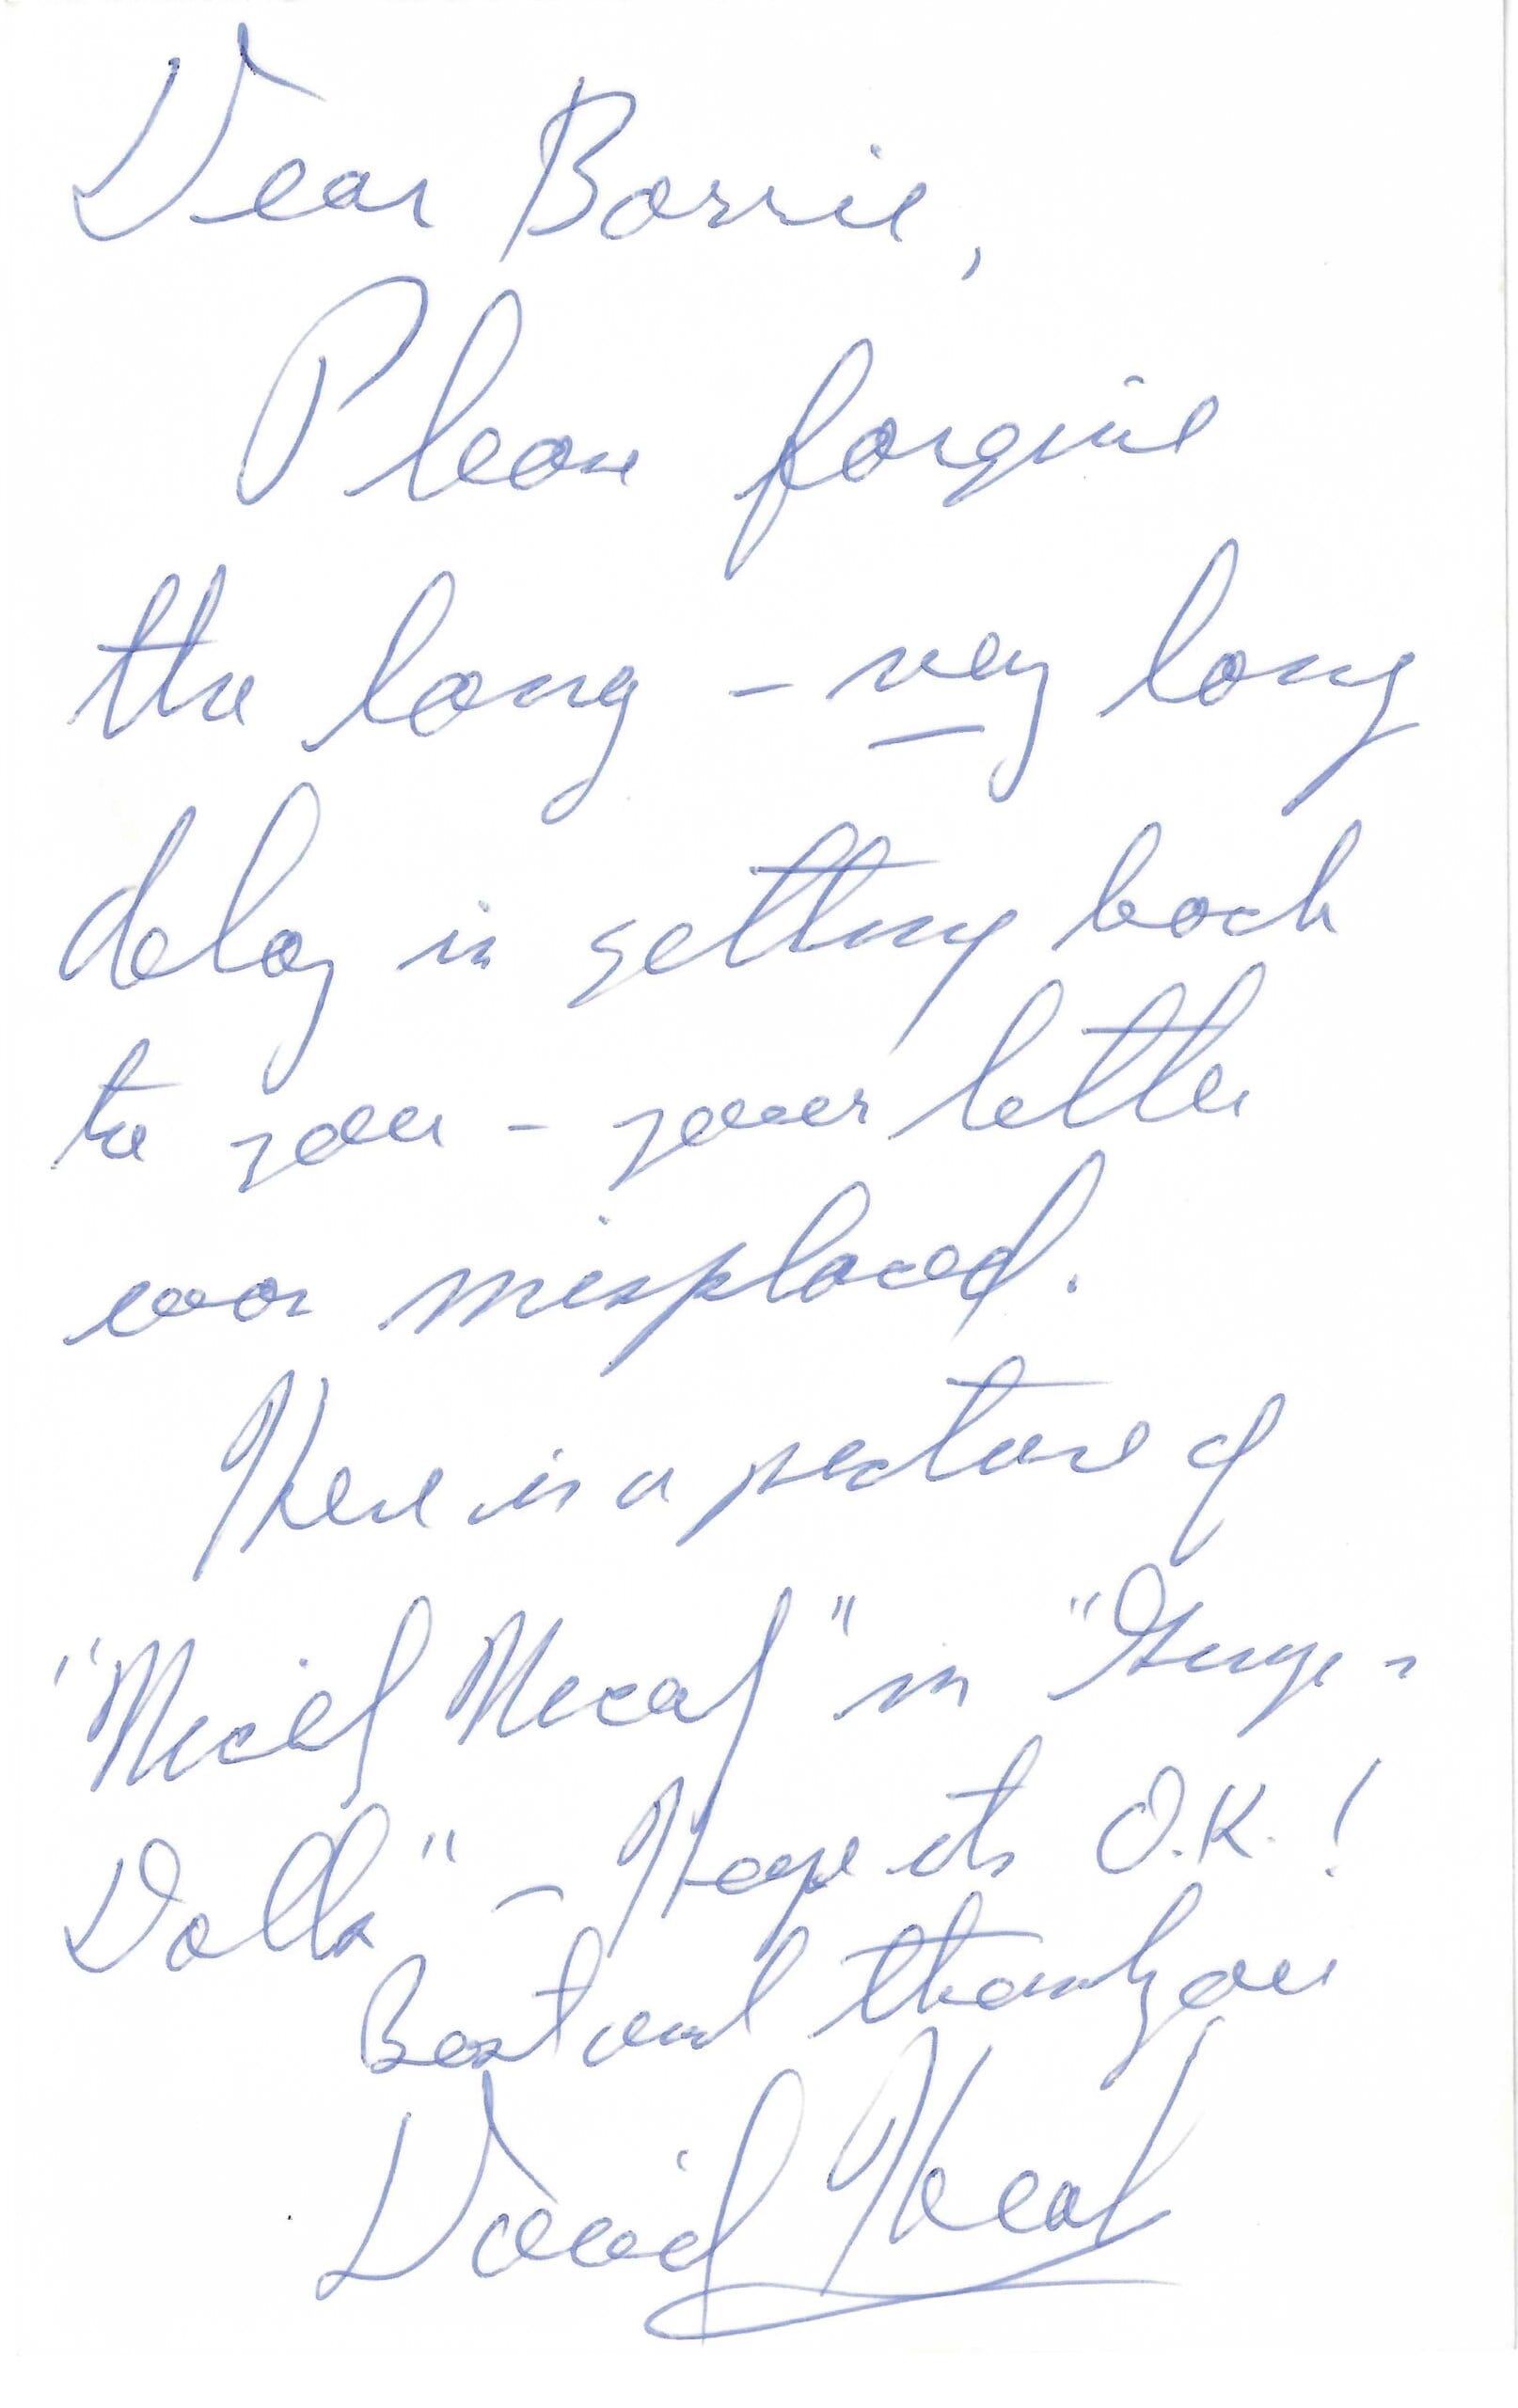 Dear Barrie,
Please forgive
the long - very long
delay in getting back
to you - your letter
was misplaced.
Here is a picture of
"Nicely Nicely" in "Guys -
Dolls" - Hope its O.K.!
Best and thank you
David